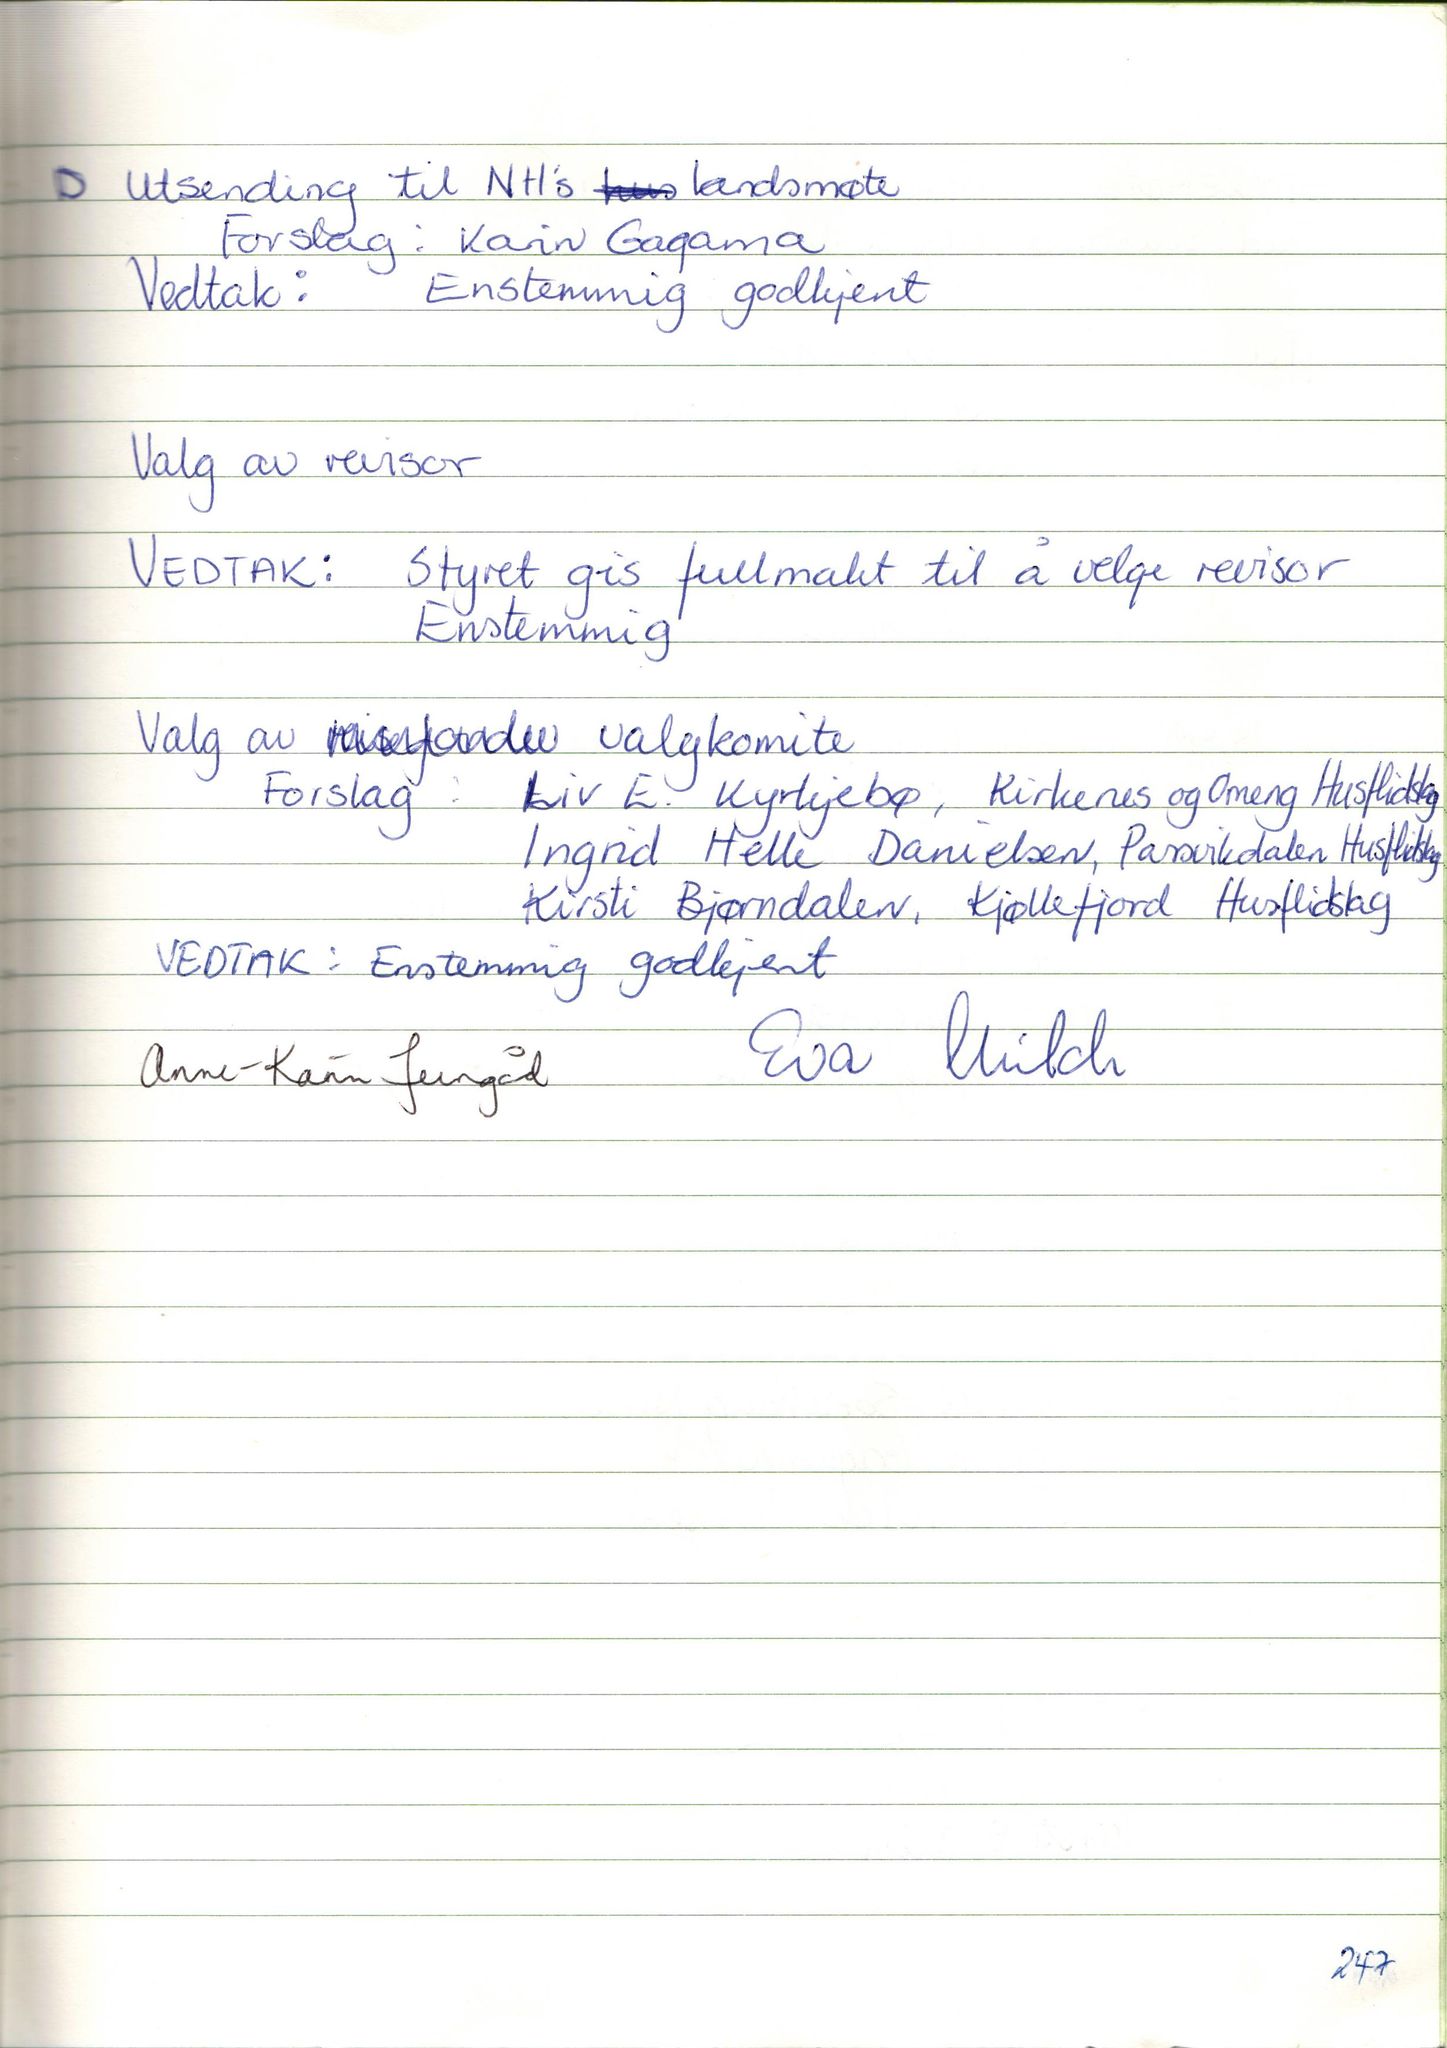 D Utsending til NH's landsmøte
Forslag: Karin Gagama
Vedtak: Enstemmig godkjent
Valg av revisor
VEDTAK: Styret gis fullmakt til å velge revisor
Enstemmig
Valg av valgkomite
Forslag: Liv E. Kyrkjebø, Kirkenes og Omeng Husflidslag
Ingrid Helle Danielsen, Pasvikdalen Husflidslag
Kirsti Bjørndalen, Kjøllefjord Husflidslag
VEDTAK: Enstemmig godkjent
Anne-Karin Eva
247